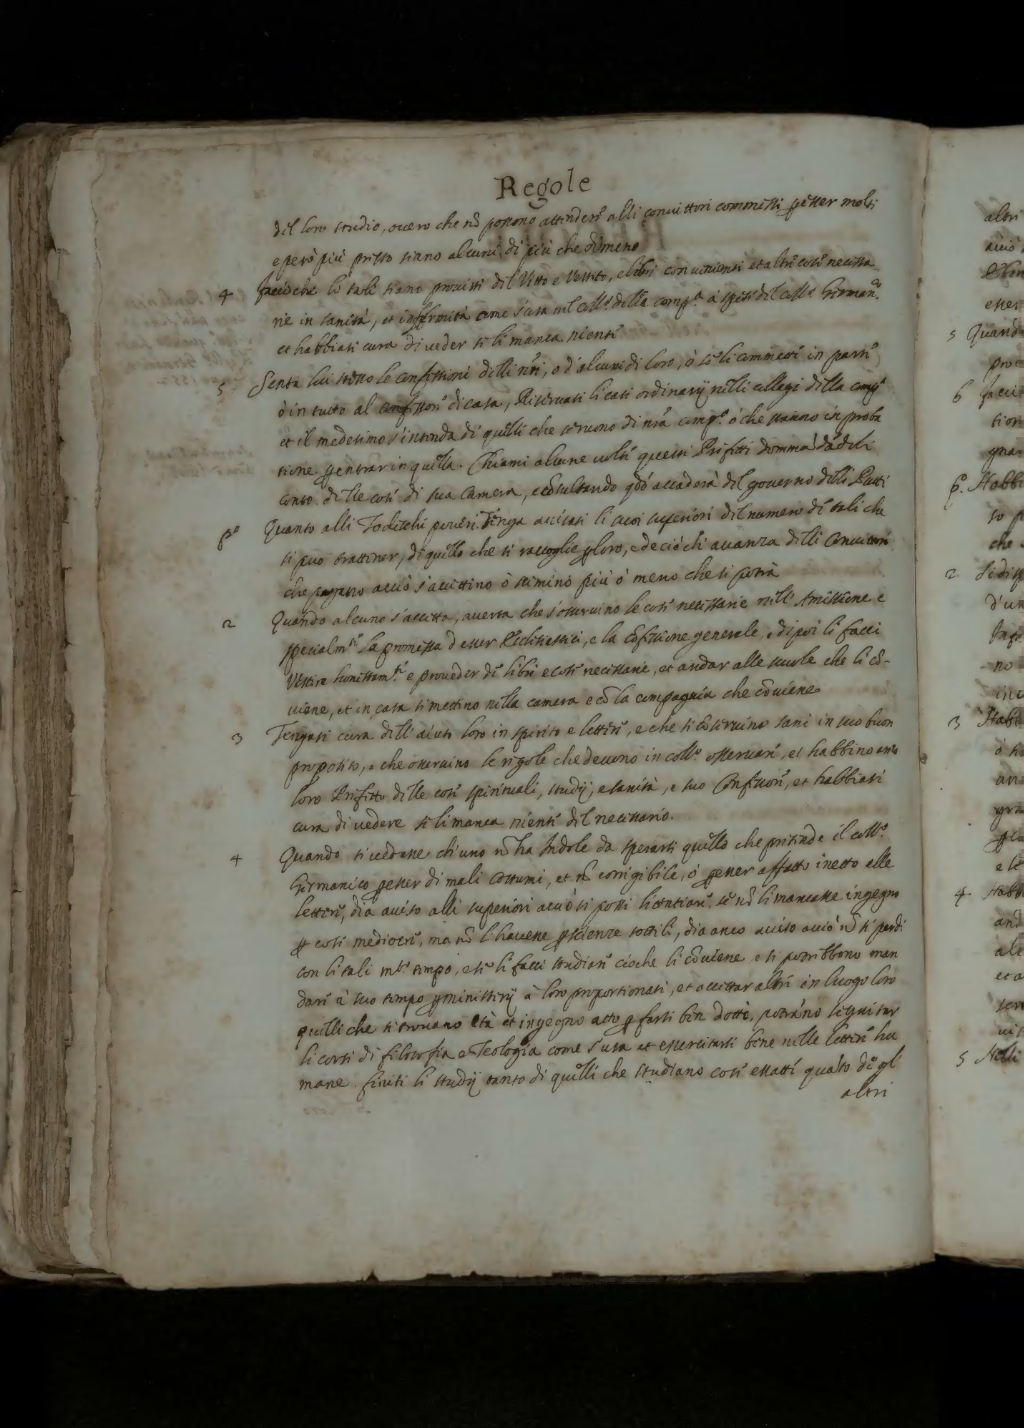 Regole
del loro studio, overo che nõ possono attender' alli convittori commissi p esser molti
e però più presto siano alcuni di più che di meno
4 facci che li tali siano provisti del Vitto e Vestito, e libri convenienti et altre cose necessa
rie in sanità, et infermità come s'usa nel coll.º della comp.ª à spese del coll.º German.co
et habbiasi cura di veder se li manca niente
5 Senta lui stesso le confessioni delli nri, o d'alcuni di loro, ò se le commetti in parte
ò in tutto al confessore di casa, Riservati li casi ordinarij nelli collegi della comp.ª
et il medesimo s'intenda di quelli che servono di nra comp.ª ò che stanno in proba
tione p entrar in quella. Chiami alcune volte questi Prefetti domma[n]dãdoli
conto delle cose di sua Camera, e cõsultando qdo accaderà del governo delli Putti
pº Quanto alli Todeschi poveri Tenga avisati li suoi superiori del numero de tali che
si può trattener, di quello che si raccoglie p loro, e de ciò ch' avanza delli Convittori
che pagano acciò s'accettino ò scemino più ò meno che si potrà
2 Quando alcuno s'accetta, averta che s'osservino le cose necessarie nell' Amissione e
specialm.te la promessa d'esser Ecclesiastici, e la Cõfessione generale, e di poi li facci
Vestire honestam.te e proveder de libri e cose necessarie, et andar alle scuole che li cõ-
viene, et in casa si mettino nella camera e cõ la compagnia che cõviene
3 Tengasi cura dell' aiuto loro in spirito e lettere, e che si cõservino sani in suo buon
proposito, e che osservino le regole che devono in coll.º osservare, et habbino anco
loro Prefetto delle cose spirituali, studij, e sanità, e suo Confessore, et habbiasi
cura di vedere se li manca niente del necessario.
4 Quando si vedesse ch' uno nõ ha Indole da sperarsi quello che pretende il coll.º
Germanico p esser di mali costumi, et nõ corrigibile, ò p esser affatto inetto alle
lettere, dia aviso alli superiori acciò si possi licentiare, se nõ li mancasse ingegno
p cose mediocri, ma nõ l'havesse p scienze sottili, dia anco aviso acciò nõ si perdi
con li tali m.to tempo, e se li facci studiare cioche li cõviene e si potrebbono man
dare à suo tempo p ministerij à loro proportionati, et accettar altri in luogo loro
quelli che si trovano età et ingegno atto p farsi ben dotti, potranno seguitar
li corsi di filosofia e Teologia come s'usa et essercitarsi bene nelle lettere hu
mane. finiti li studij tanto di quelli che studiano cose essatte quãto de gl
altri